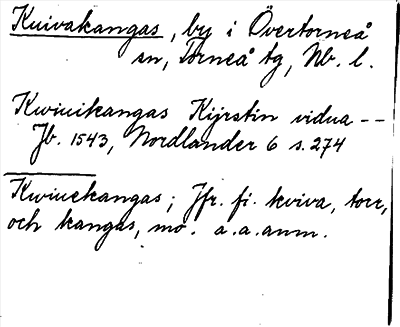 Kuivakangas, by i Övertorneå
sn, Torneå tg, Nb. l.
Kwiuikangas Kijrstin vidua --
Jb. 1543, Nordlander 6 s. 274
Kwiuekangas; Jfr. fi. kviva, torr,
och kangas, mo. a.a.anm.